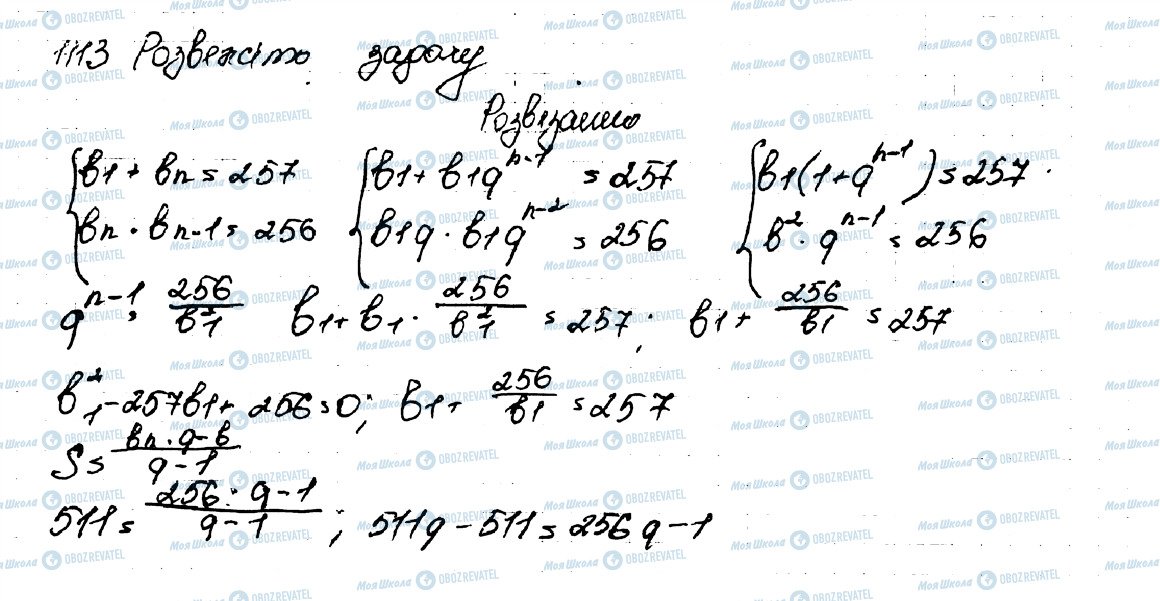 1113 Розвежіть задачу
Розвязання
{b1 + bn = 257 {b1 + b1q^(n-1) = 257 {b1(1+q^(n-1)) = 257.
bn · bn-1 = 256 b1q · b1q^(n-2) = 256 b^2 · q^(n-1) = 256
q^(n-1) = 256/b^2 1 b1 + b1 · 256/b^2 1 = 257. b1 + 256/b1 = 257
b^2 1 - 257b1 + 256 = 0; b1 + 256/b1 = 257
S = (bn · q - b)/(q - 1)
511 = (256 · q - 1)/(q - 1); 511q - 511 = 256q - 1
Моя Школа OBOZREVATEL